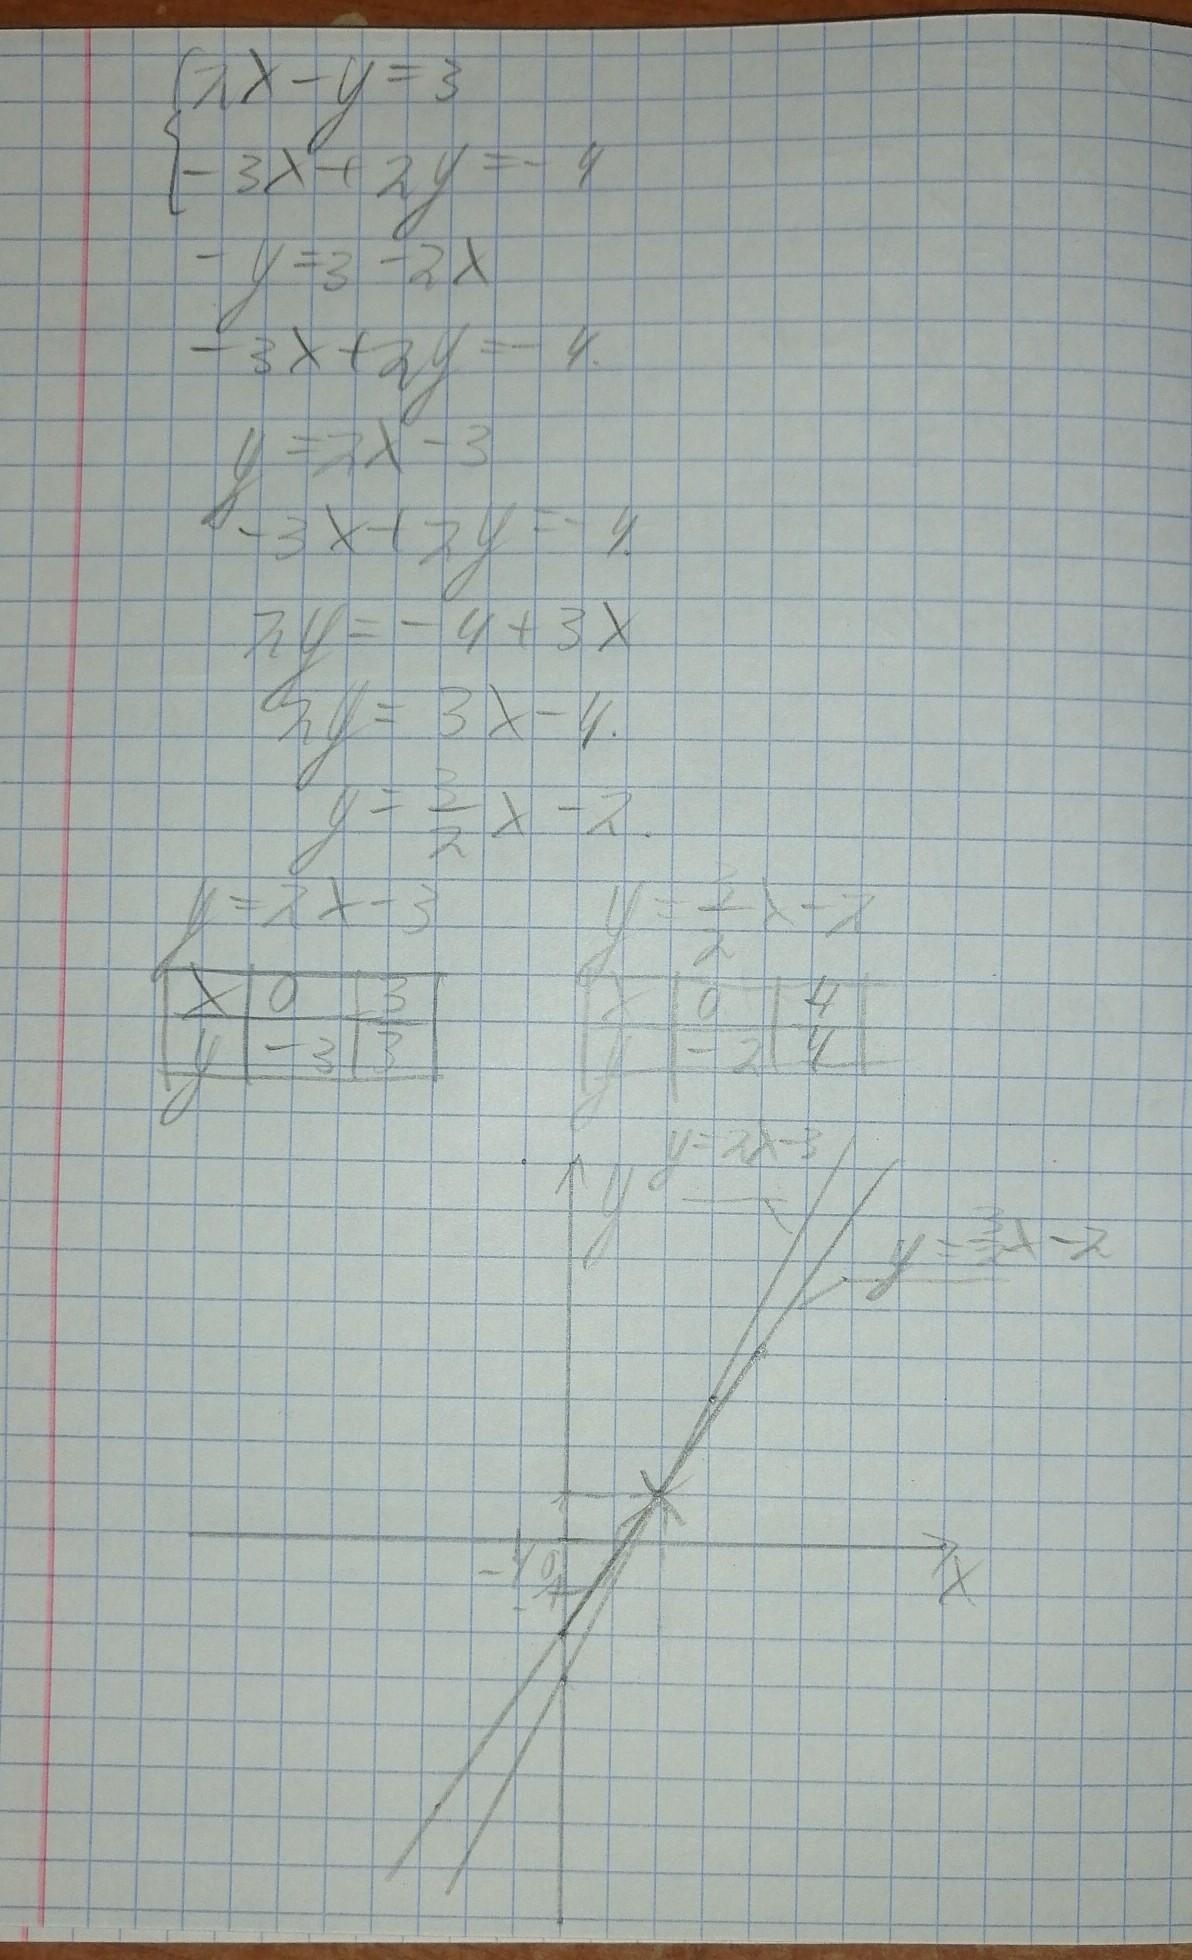 2x-y=3
-3x+2y=-4
-y=3-2x
-3x+2y=-4.
y=2x-3
-3x+2y=-4.
2y=-4+3x
2y=3x-4.
y=3/2x-2.
y=2x-3 y=3/2x-2
x 0 3 x 0 4
y -3 3 y -2 4
y=2x-3
y
y=3/2x-2
0
x